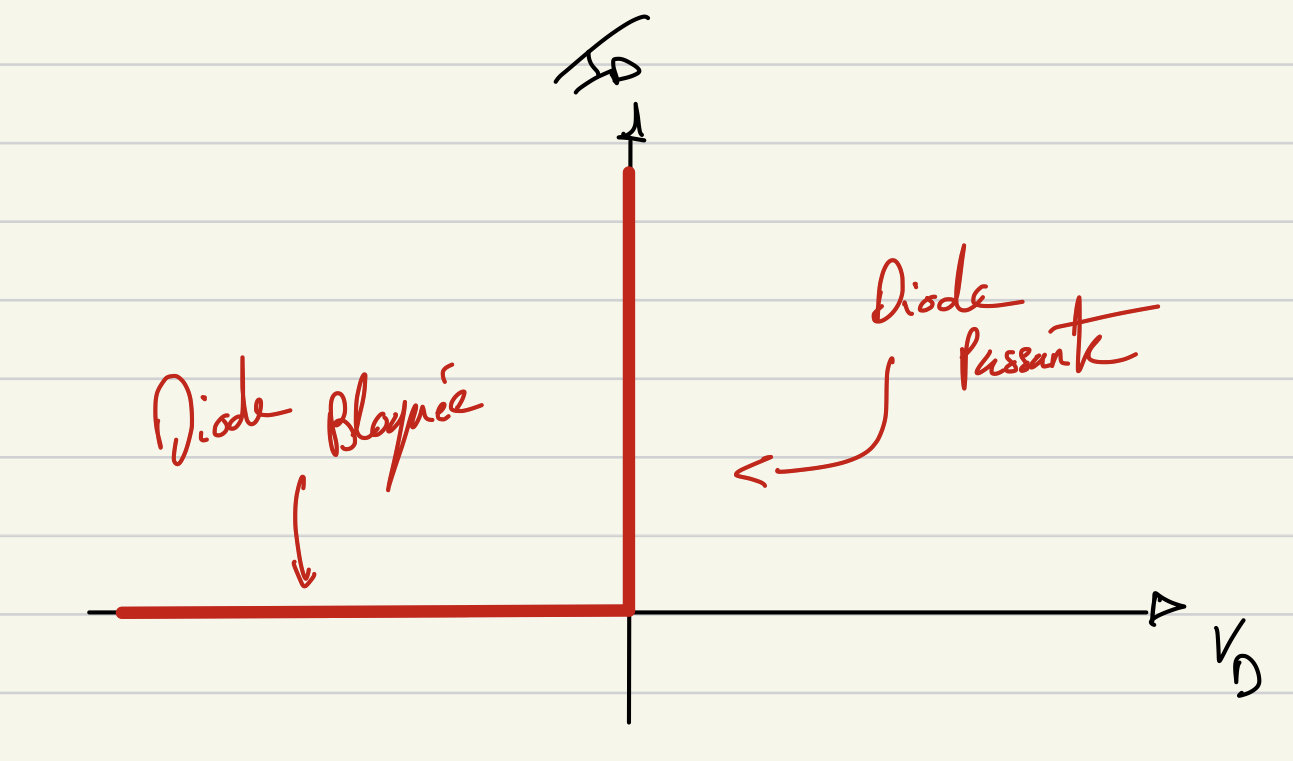 I_D
Diode
Passante
Diode Bloquée
V_D